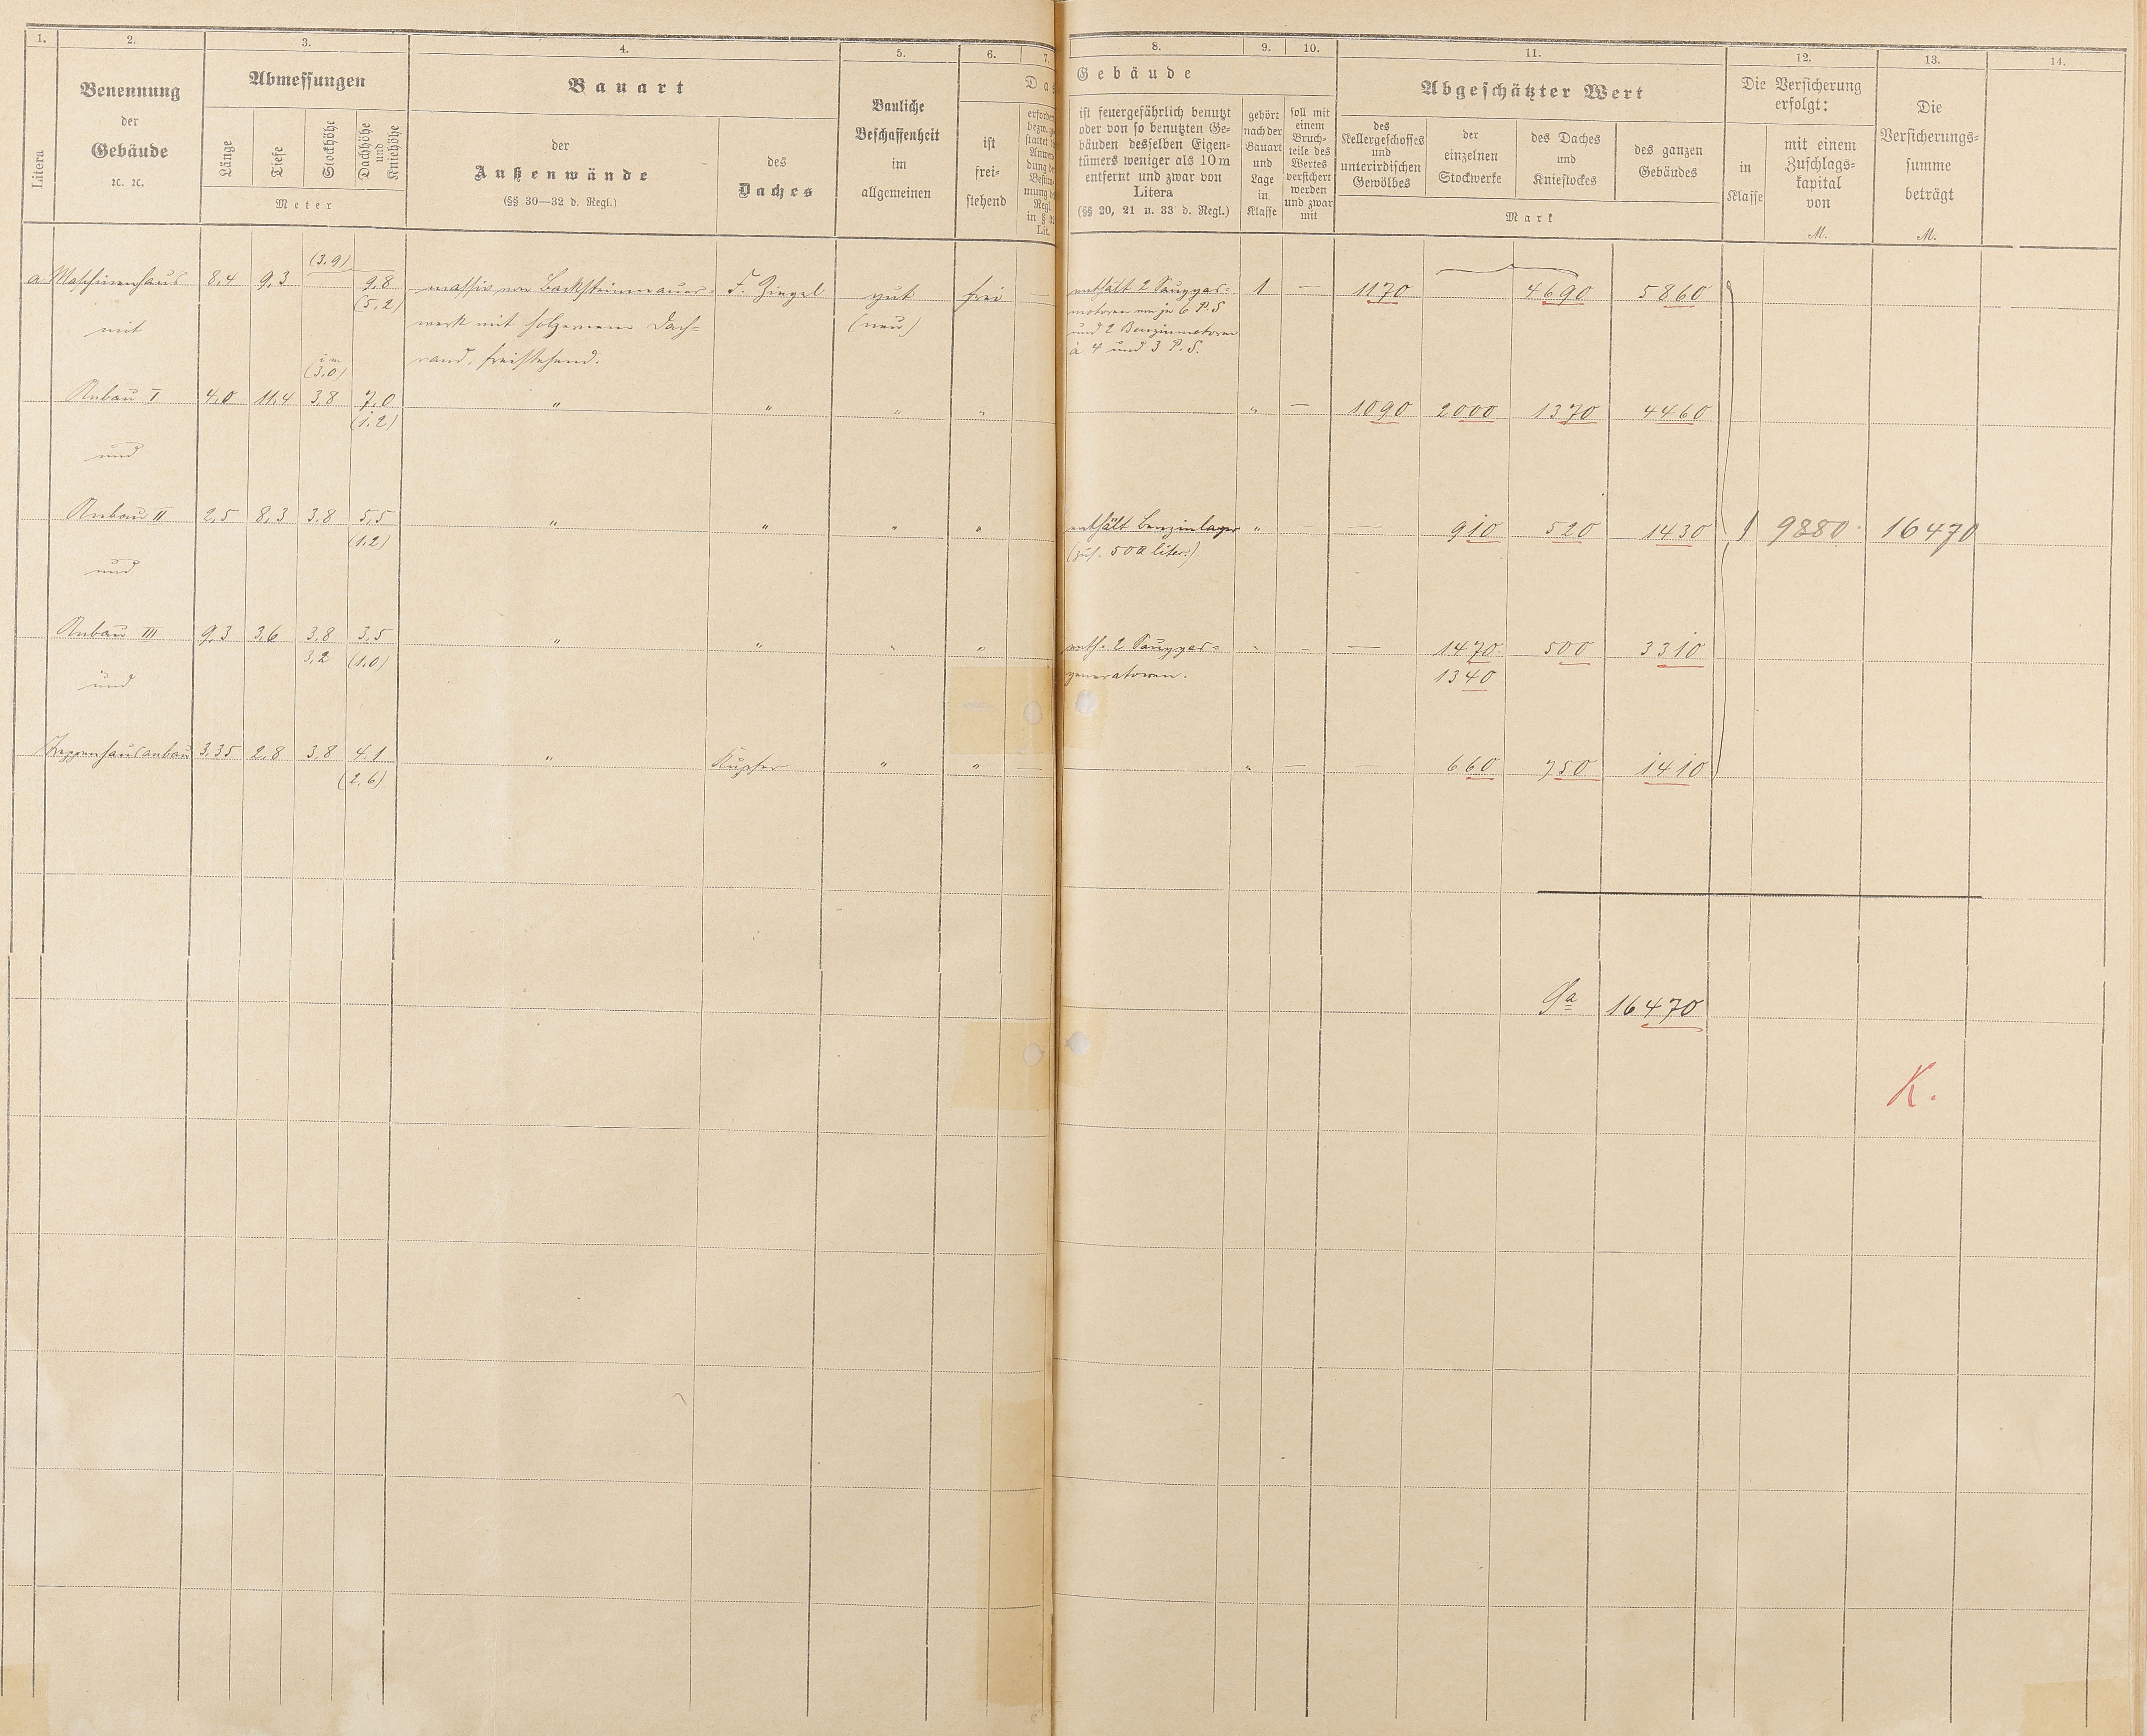 1. 2. 3. 4. 5. 6. 7. 8. 9. 10. 11. 12. 13. 14.
Litera
Benennung
der
Gebäude
ꝛc. ꝛc.
Abmessungen
Länge
Tiefe
Stockhöhe
Dachhöhe und Kniehöhe
Meter
Bauart
der
Außenwände
(§§ 30—32 d. Regl.)
des
Daches
Bauliche
Beschaffenheit
im
allgemeinen
ist
frei-
stehend
Gebäude
ist feuergefährlich benutzt
oder von so benutzten Ge-
bäuden desselben Eigen-
tümers weniger als 10 m
entfernt und zwar von
Litera
(§§ 20, 21 u. 33 d. Regl.)
gehört
nach der
Bauart
und
Lage
in
Klasse
soll mit
einem
Bruch-
teile des
Wertes
versichert
werden
und zwar
mit
Abgeschätzter Wert
des
Kellergeschosses
und
unterirdischen
Gewölbes
der
einzelnen
Stockwerke
des Daches
und
Kniestockes
des ganzen
Gebäudes
Mark
Die Versicherung
erfolgt:
in
Klasse
mit einem
Zuschlags-
kapital
von
M.
Die
Versicherungs-
summe
beträgt
M.
(3.9)
a Maschinenhaus 8,4 9,3 — 9,8 massiv von Backsteinmauer- F. Ziegel gut frei — enthält 2 Sauggas- 1 — 1170 4690 5860
(5,2) werk mit holzernem Dach- (neu) motoren von je 6 P.S
mit und 2 Benzinmotoren
rand, freistehend. à 4 und 3 P.S.
im
(3,0)
Anbau I 4,0 11,4 3,8 7,0 " " " " " — 1090 2000 1370 4460
(1.2)
und
Anbau II 2,5 8,3 3,8 5,5 " " " " enthält Benzinlager " — — 910 520 1430 1 9880 16470
(1.2) (zus. 500 liter.)
und
Anbau III 9,3 3,6 3,8 3,5 " " " " enth. 2 Sauggas- " — — 1470 500 3310
3,2 (1.0) generatoren. 1340
und
Treppenhausanbau 3,35 2,8 3,8 4.1 " Kupfer " " — " — — 660 750 1410
(2.6)
Sa 16470
K.